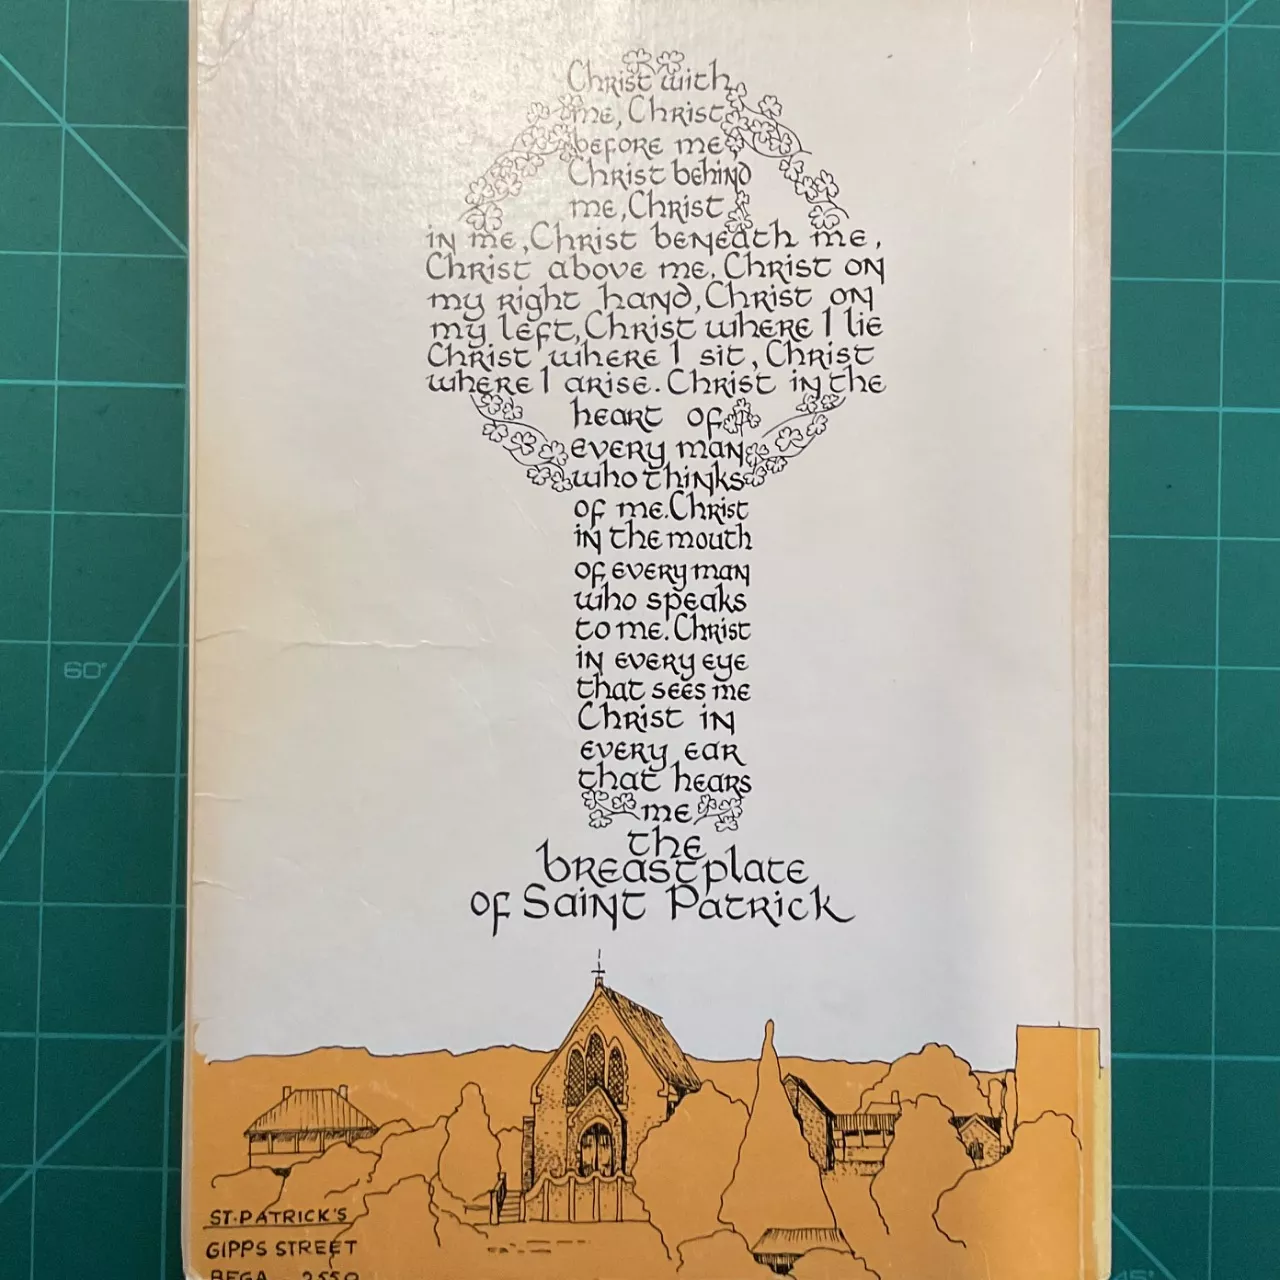 Christ with
me, Christ
before me,
Christ behind
me, Christ
in me, Christ beneath me,
Christ above me, Christ on
my right hand, Christ on
my left, Christ where I lie
Christ where I sit, Christ
where I arise. Christ in the
heart of
every man
who thinks
of me. Christ
in the mouth
of every man
who speaks
to me. Christ
in every eye
that sees me
Christ in
every ear
that hears
me
the
breastplate
of Saint Patrick
60°
ST·PATRICK'S
GIPPS STREET
BEGA 2550